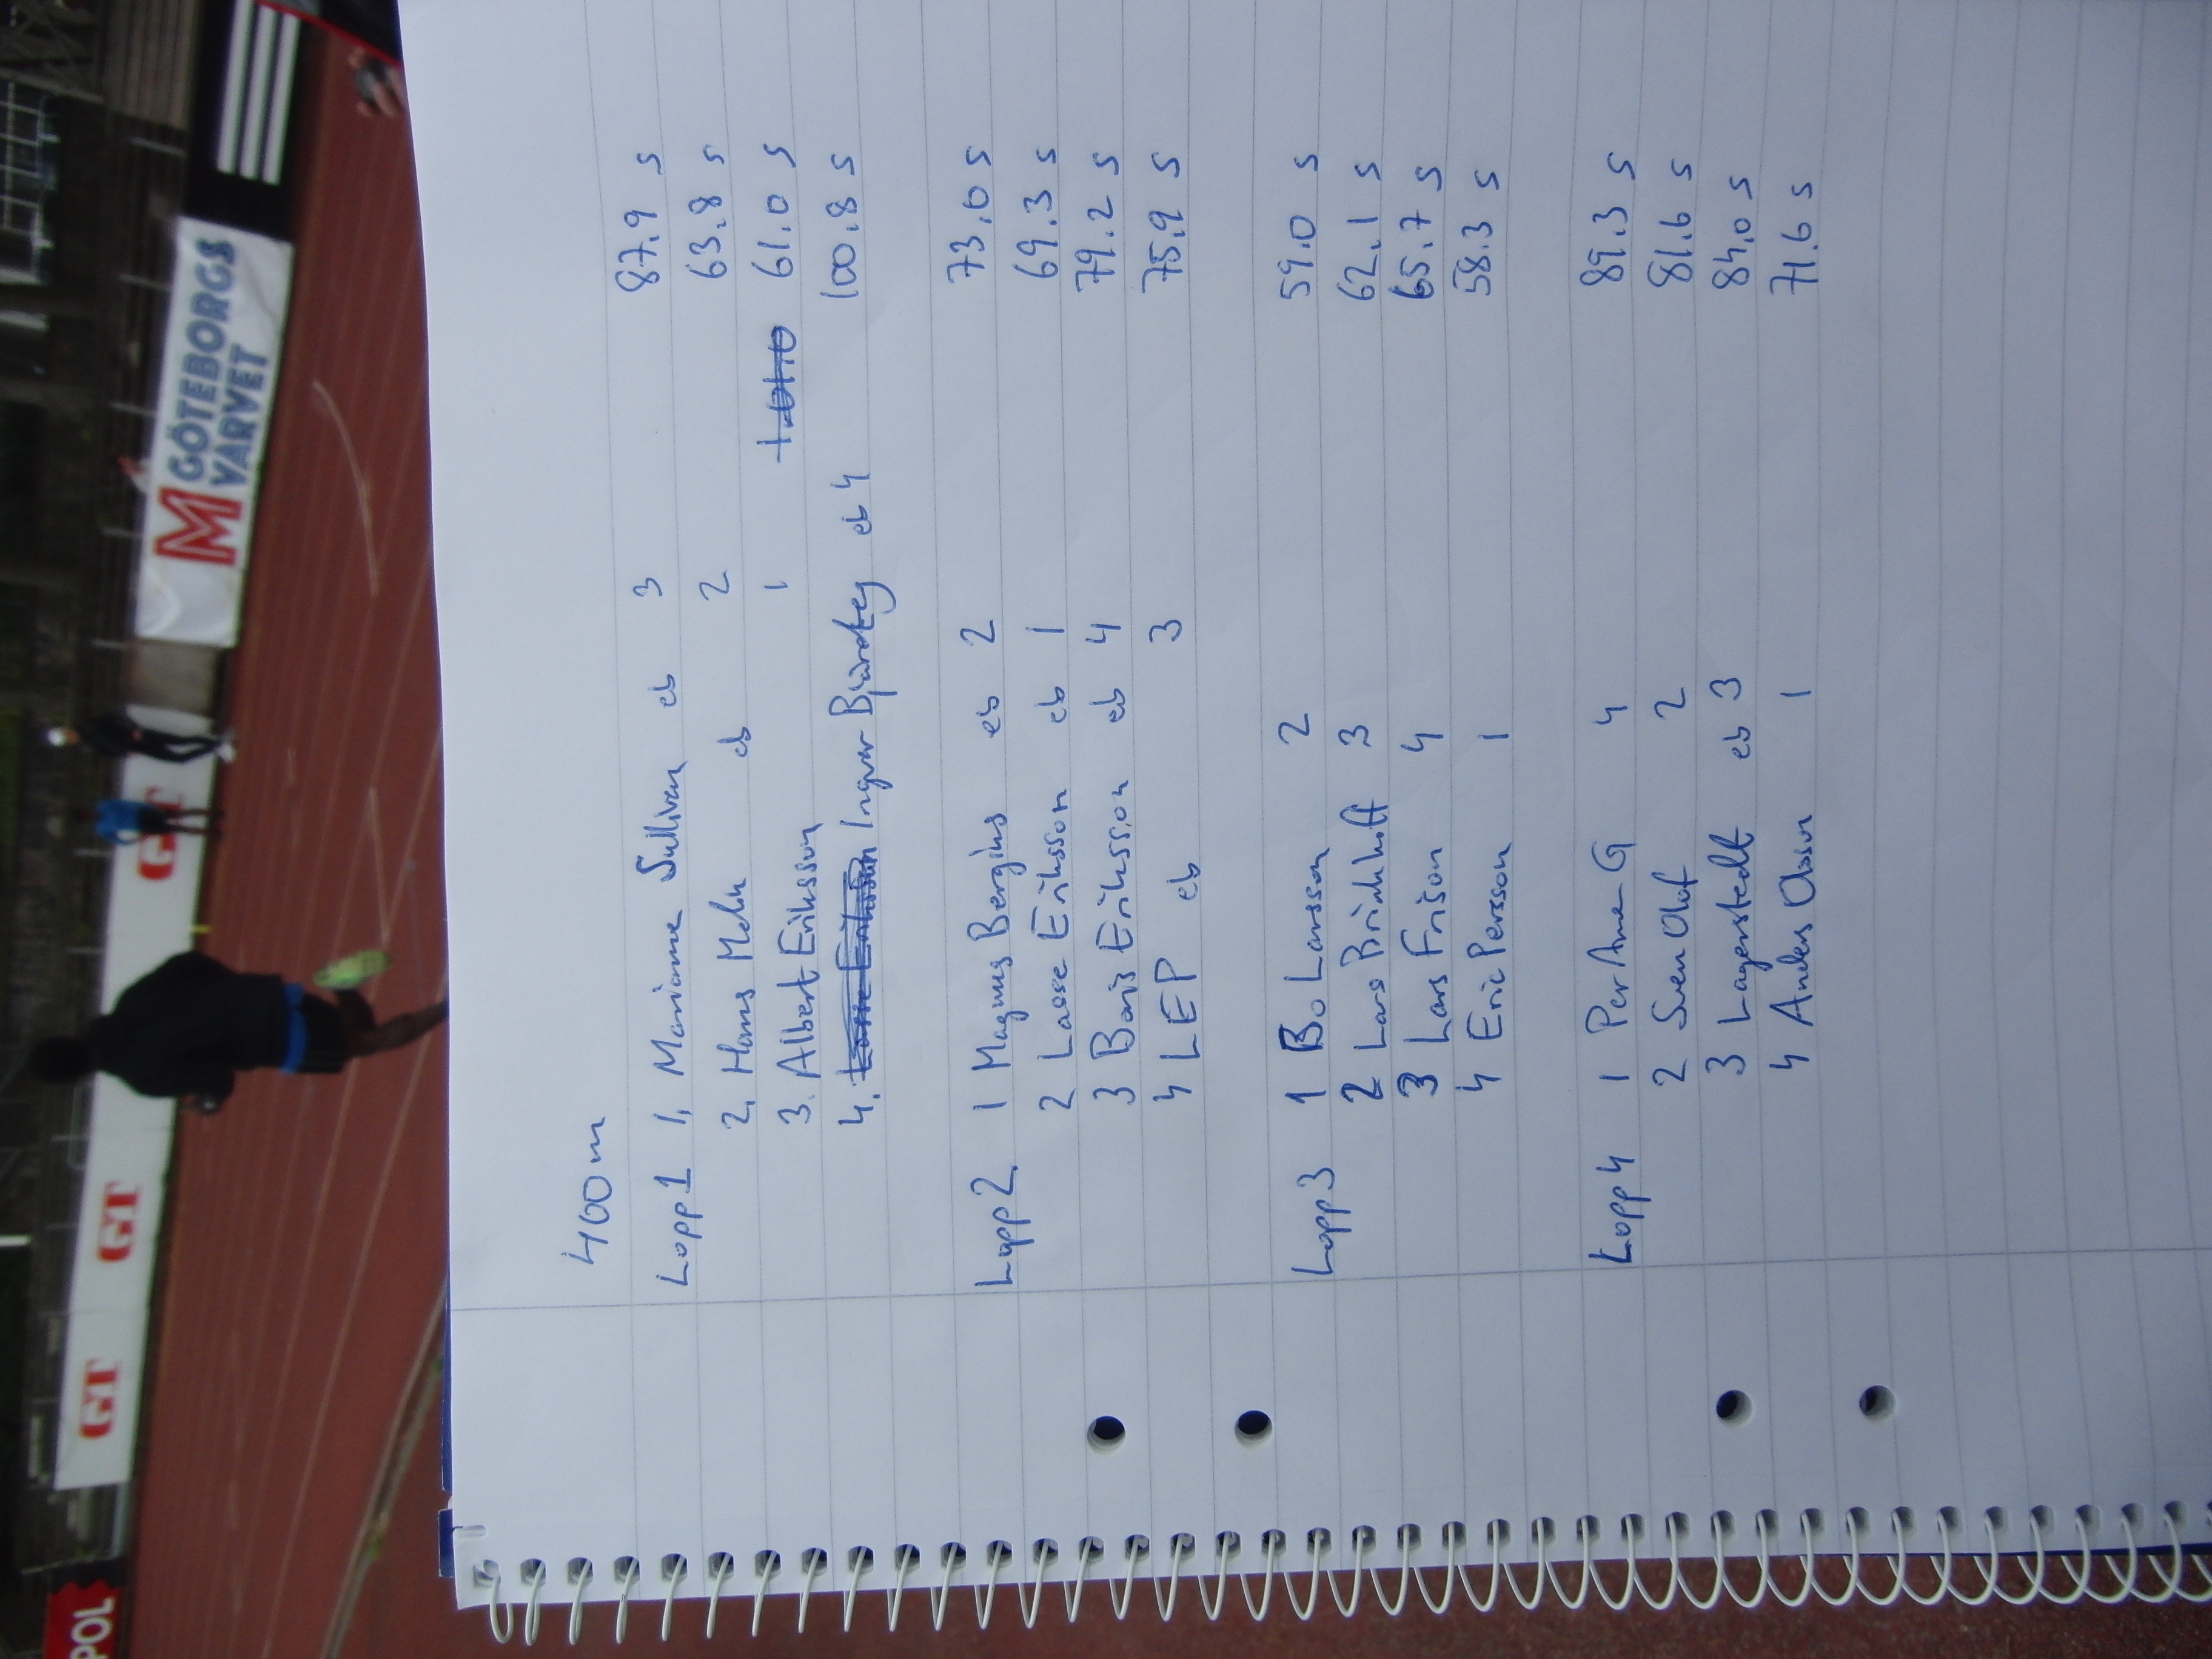 POL
GT
GT
GT
M GÖTEBORGS
VARVET
400m
Lopp 1 1, Marianne Sullivan eb 3 87.9 s
2, Hans Melin eb 2 63.8 s
3. Albert Eriksson 1 1.01.0 61.0 s
4. Lasse Eriksson Ingvar eb 4 100.8 s
Lopp 2 1 Magnus Bergius eb 2 73.0 s
2 Lasse Eriksson eb 1 69.3 s
3 Boris Eriksson eb 4 79.2 s
4 LEP eb 3 75.9 s
Lopp 3 1 Bo Larsson 2 59.0 s
2 Lars Brinkhoff 3 62.1 s
3 Lars Frison 4 65.7 s
4 Eric Persson 1 58.3 s
Lopp 4 1 Per Arne G 4 89.3 s
2 Sven Olof 2 81.6 s
3 Lagerstedt eb 3 84.0 s
4 Anders Olsson 1 71.6 s